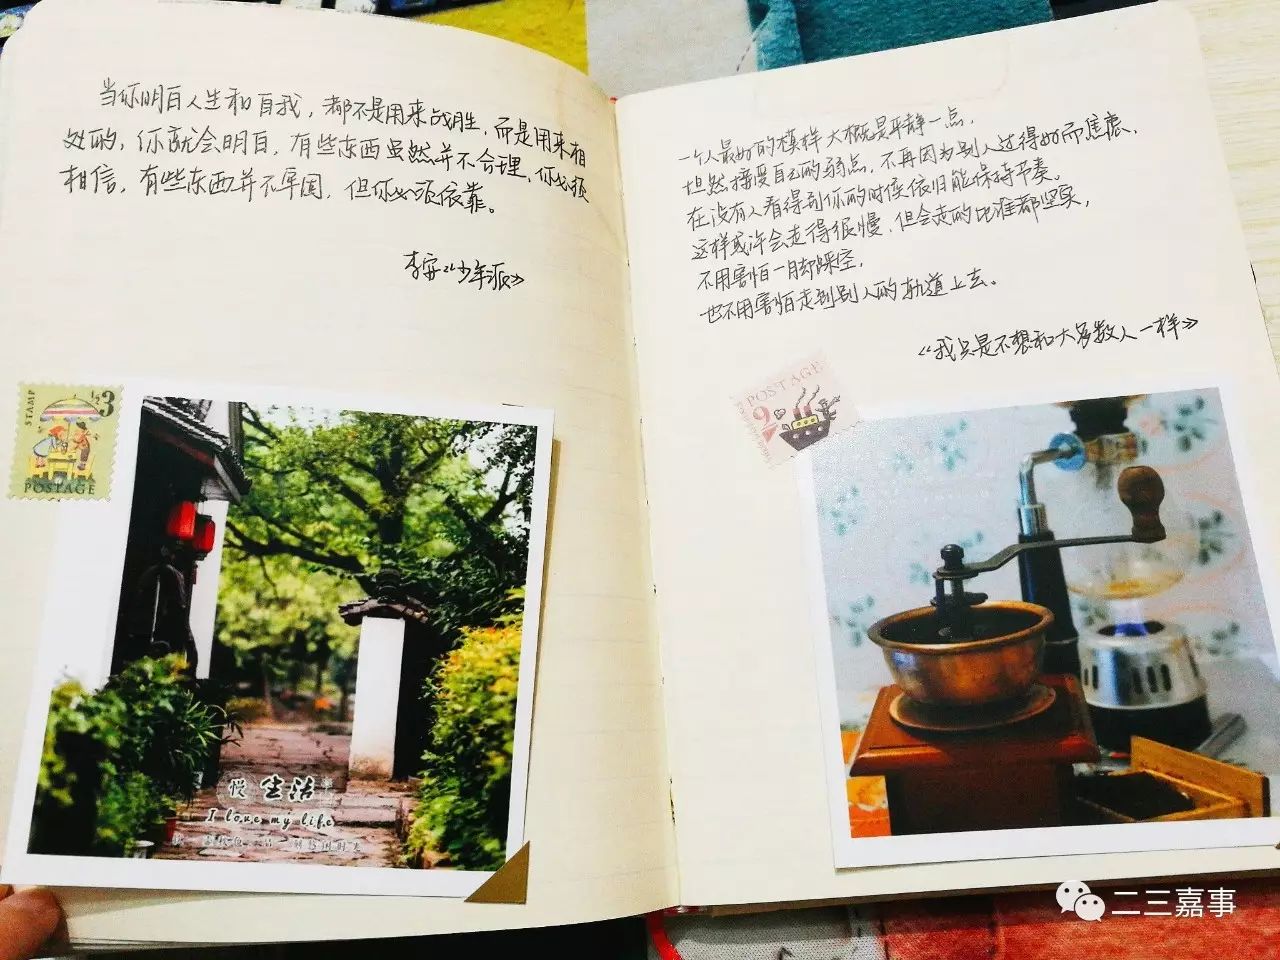 当你明白人生和自我，都不是用来战胜，而是用来相
处的，你就会明白，有些东西虽然并不合理，你必须
相信，有些东西并不牢固，但你必须依靠。
李安《少年派》
STAMP
3
POSTAGE
生活
I love my life
一个人最好的模样大概是平静一点，
坦然接受自己的弱点，不再因为别人过得好而焦虑，
在没有人看得到你的时候依旧能保持节奏。
这样或许会走得很慢，但会走的比谁都坚实，
不用害怕一脚踩空，
也不用害怕走到别人的轨道上去。
《我只是不想和大多数人一样》
POSTAGE
2
二三嘉事